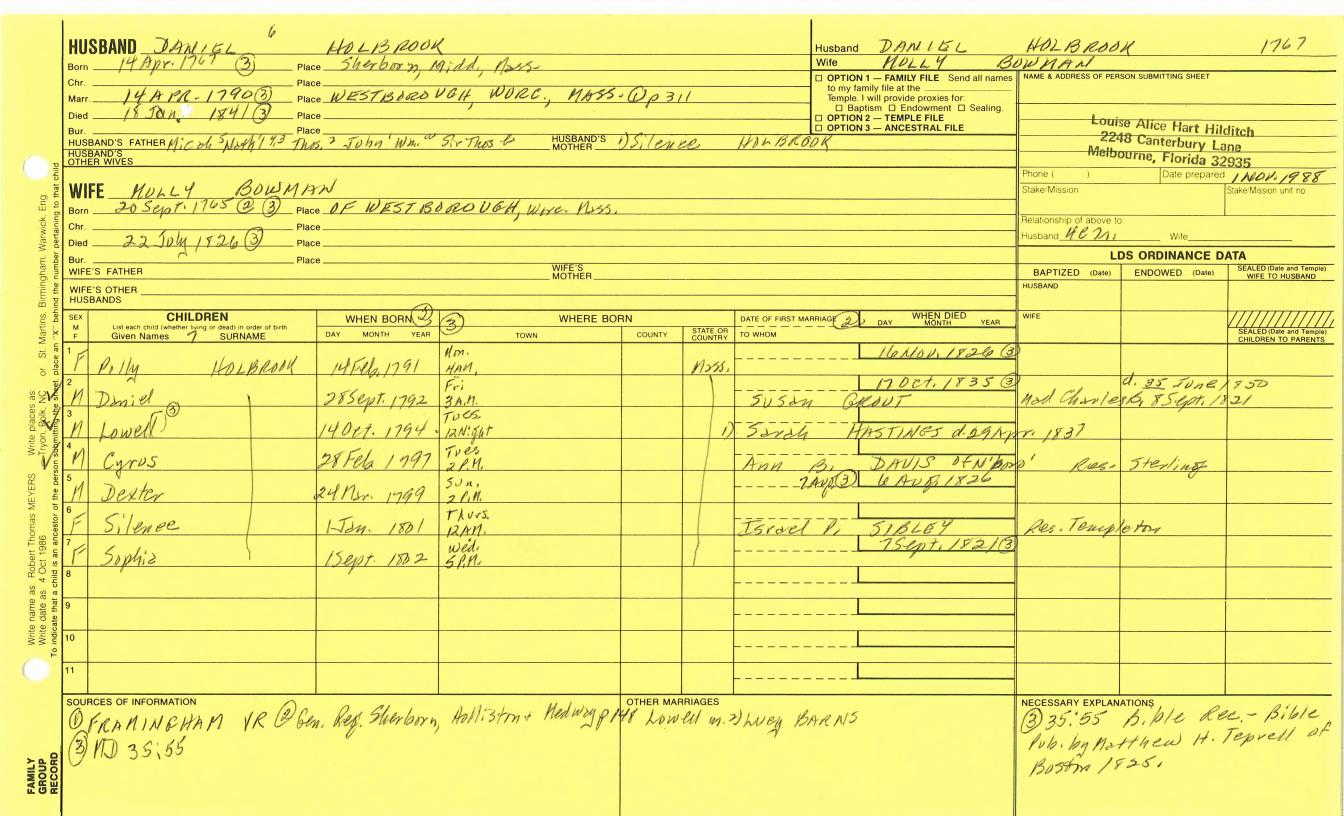 HUSBAND DANIEL 6 HOLBROOK
Born 14 Apr. 1767 (3) Place Sherborn, Midd, Mass-
Chr. Place
Marr 14 APR. 1790 (3) Place WESTBOROUGH, WORC., MASS. (1) p 311
Died 18 Jan. 1841 (3) Place
Bur. Place
HUSBAND'S FATHER Micah 5 Nath'l 4,3 Thos. 2 John 1 Wm. Sir Thos HUSBAND'S MOTHER 1) Silence HOLBROOK
HUSBAND'S OTHER WIVES
WIFE MOLLY BOWMAN
Born 20 Sept. 1765 (2) (3) Place OF WESTBOROUGH, Worc. Mass.
Chr. Place
Died 22 July 1826 (3) Place
Bur. Place
WIFE'S FATHER WIFE'S MOTHER
WIFE'S OTHER HUSBANDS
Husband DANIEL HOLBROOK 1767
Wife MOLLY BOWMAN
☐ OPTION 1 — FAMILY FILE Send all names
to my family file at the
Temple. I will provide proxies for:
☐ Baptism ☐ Endowment ☐ Sealing.
☐ OPTION 2 — TEMPLE FILE
☐ OPTION 3 — ANCESTRAL FILE
NAME & ADDRESS OF PERSON SUBMITTING SHEET
Louise Alice Hart Hilditch
2248 Canterbury Lane
Melbourne, Florida 32935
Phone ( ) Date prepared 1 NOV. 1988
Stake/Mission Stake/Mission unit no
Relationship of above to:
Husband Wife
LDS ORDINANCE DATA
BAPTIZED (Date) ENDOWED (Date) SEALED (Date and Temple) WIFE TO HUSBAND
HUSBAND
WIFE
SEALED (Date and Temple) CHILDREN TO PARENTS
SEX M F
CHILDREN
List each child (whether living or dead) in order of birth
Given Names 7 SURNAME
WHEN BORN (2)
DAY MONTH YEAR
(3) WHERE BORN
TOWN COUNTY STATE OR COUNTRY
DATE OF FIRST MARRIAGE (2)
TO WHOM
WHEN DIED
DAY MONTH YEAR
1 F Polly HOLBROOK 14 Feb. 1791 Mon. Mass. 16 Nov. 1826 (3)
2 M Daniel 28 Sept. 1792 Fri 3 A.M. 17 Oct. 1835 (3) SUSAN GROUT d. 25 June 1850
Charles 8 Sept. 1821
3 M Lowell (3) 14 Oct. 1794 Tues. 12 Night 1) Sarah HASTINGS d. 29 Apr. 1837
4 M Cyrus 28 Feb 1797 Tues 2 P.M. Ann B. DAVIS of N'boro' Res- Sterling
5 M Dexter 24 Mar. 1799 Sun. 2 P.M. 7 Aug (3) 6 Aug. 1826
6 F Silence 1 Jan. 1801 Thurs. 12 A.M. Israel P. SIBLEY Res. Templeton
7 F Sophia 1 Sept. 1802 Wed. 5 P.M. 7 Sept. 1821 (3)
8
9
10
11
SOURCES OF INFORMATION
(1) FRAMINGHAM VR (2) Gen. Reg. Sherborn, Holliston + Medway p 148
(3) MD 35:55
OTHER MARRIAGES
Lowell m. 2) Lucy BARNS
NECESSARY EXPLANATIONS
(3) 35:55 Bible Rec.- Bible
Pub. by Matthew H. of
Boston 1825.
FAMILY GROUP RECORD
Write name as Robert Thomas MEYERS Write places as Tryon, Polk, NC or St. Martins, Birmingham, Warwick, Eng
Write date as 4 Oct 1986
To indicate that a child is an ancestor of the person submitting the sheet, place an "X" behind the number pertaining to that child